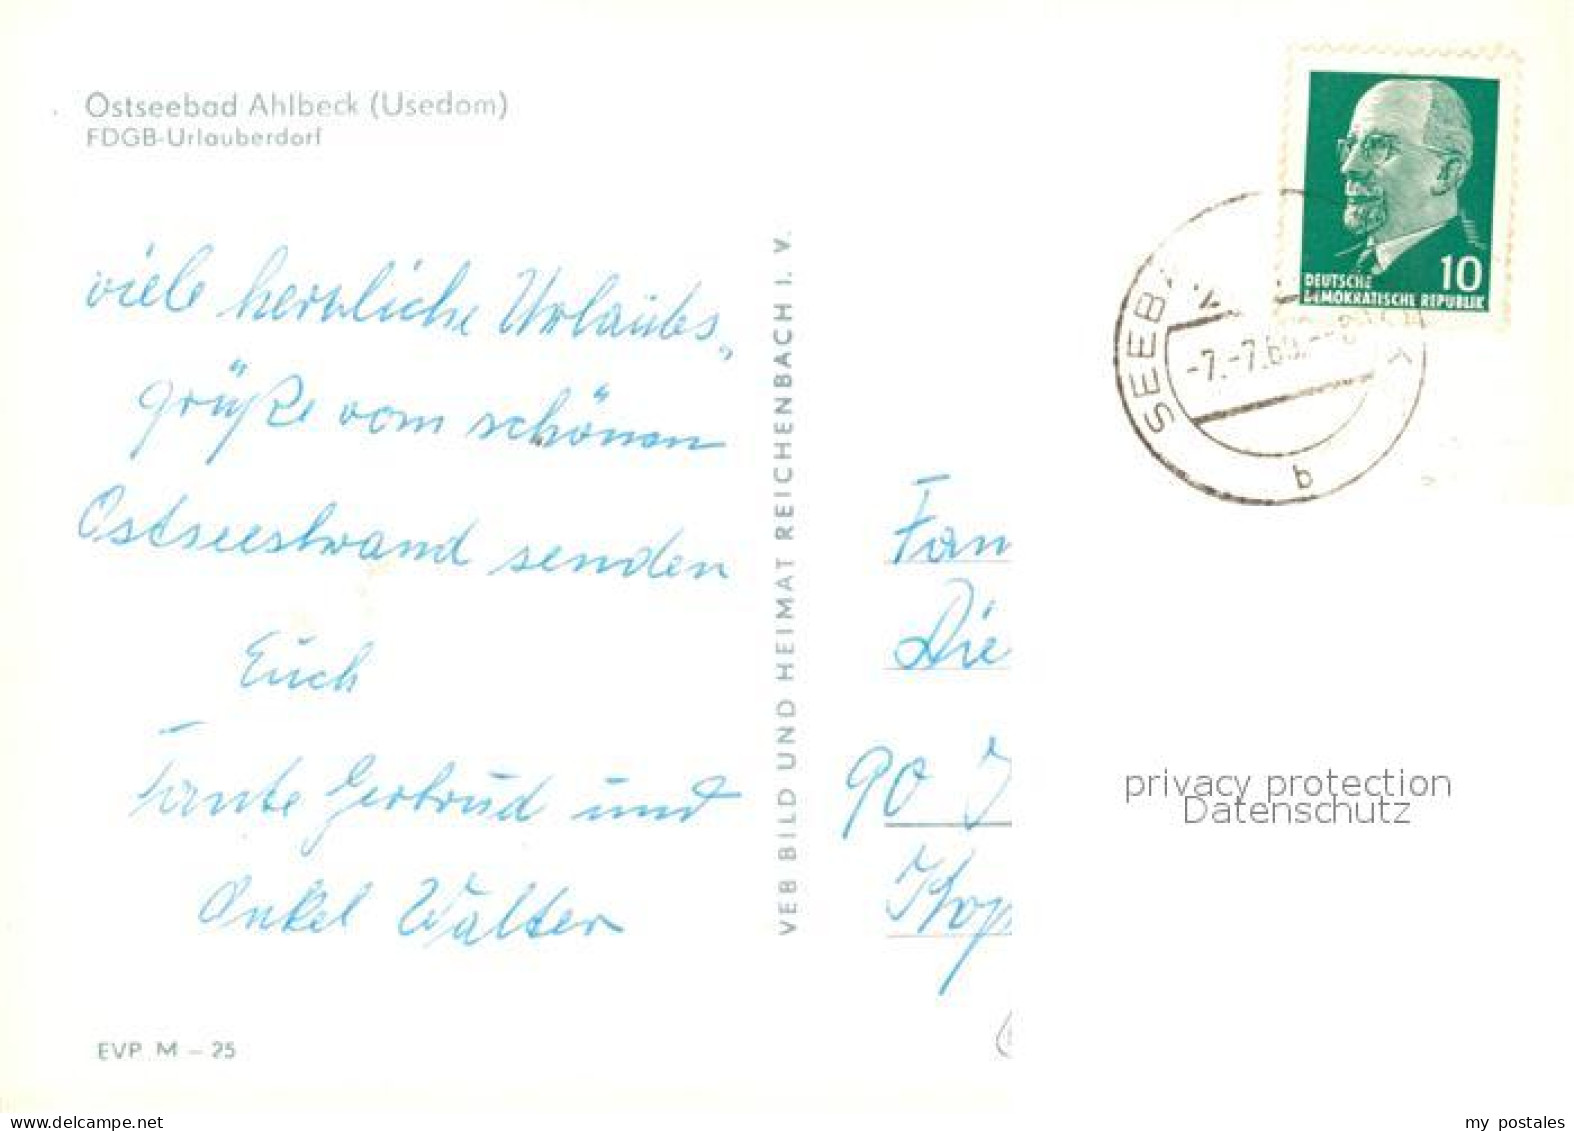 Ostseebad Ahlbeck (Usedom)
FDGB-Urlauberdorf
viele herrliche Urlaubs„
grüße vom schönen
Ostseestrand senden
Euch
Tante Gertrud und
Onkel Walter
EVP M – 25
VEB BILD UND HEIMAT REICHENBACH I. V.
10
DEUTSCHE
DEMOKRATISCHE REPUBLIK
SEEB
-7.-7.6
b
Fam
Die
90
privacy protection
Datenschutz
www.delcampe.net
my postales